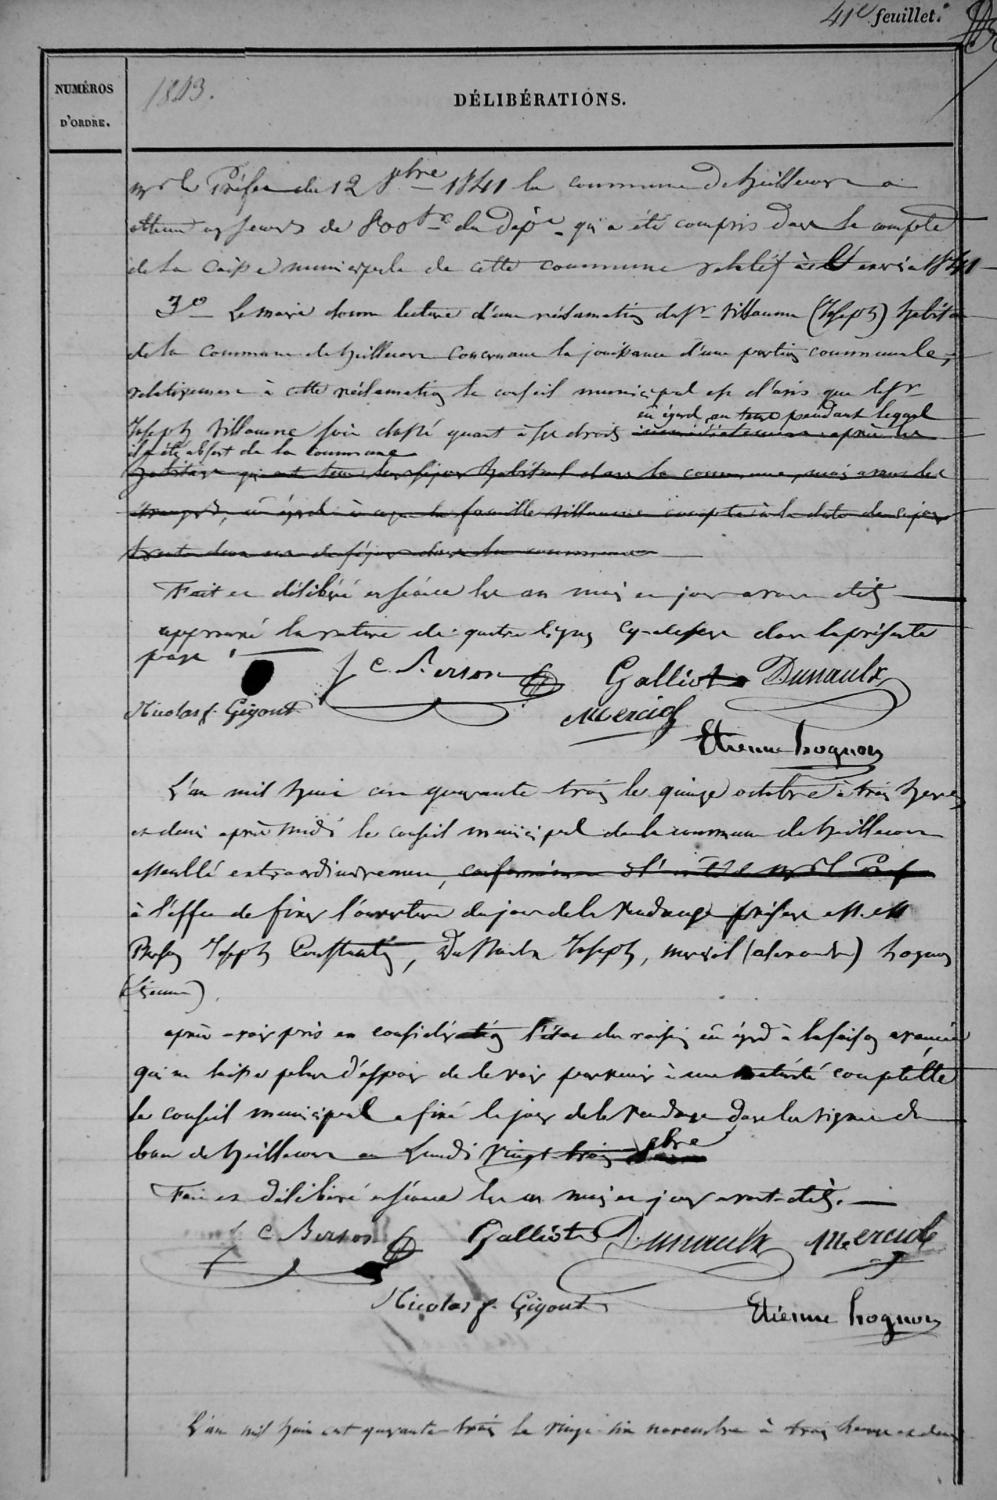 41e feuillet.
NUMÉROS D'ORDRE.
1843.
DÉLIBÉRATIONS.
mr le Préfet du 12 8bre 1841 la commune de heillecourt a
secours de 800 f du dépt qui a été compris dans le compte
de la caisse municipale de cette commune relatif à l' 1841
3o Le maire donne lecture d'une réclamation du sr Villaume (Joseph) habitant
de la commune de heillecourt concernant la jouissance d'une portion communale,
relativement à cette réclamation le conseil municipal est d'avis que le sr
eu égard au pendant lequel
Joseph Villaume soit classé quant à ses droits immédiatement après les
il a été absent de la commune
habitans qui ont leur habituel dans la commune, mais avant les
eu égard à ce que la famille Villaume compte à la date de ce jour
trente deux ans de séjour dans la commune
Fait et délibéré en séance les an mois et jour avant dits
approuvé la rature de quatre lignes cy-dessus dans la présente
page.
J C Berson Galliot Dussaulx
Nicolas f. Gigout Merciol
Etienne hognon
L'an mil huit cent quarante trois le quinze octobre à trois heures
et demi après midi le conseil municipal de la commune de heillecourt
assemblé extraordinairement, conformément à l' mr le Préf
à l'effet de fixer l'ouverture du jour de la vendange présens
Berson Joseph Constantin, Dussaulx Joseph, merciol (alexandre) hognon
(Etienne).
après avoir pris en considération l'état du raisin eu égard à la saison avancée
qui ne laisse plus d'espoir de le voir parvenir à une maturité complette
le conseil municipal a fixé le jour de la vendange dans les vignes du
ban de heillecourt au Lundi vingt trois 8bre
Fait et délibéré en séance les an mois et jour avant dits.
J C Berson Galliot Dussaulx Merciol
Nicolas f. Gigout Etienne hognon
L'an mil huit cent quarante trois le vingt six novembre à trois heures et demi